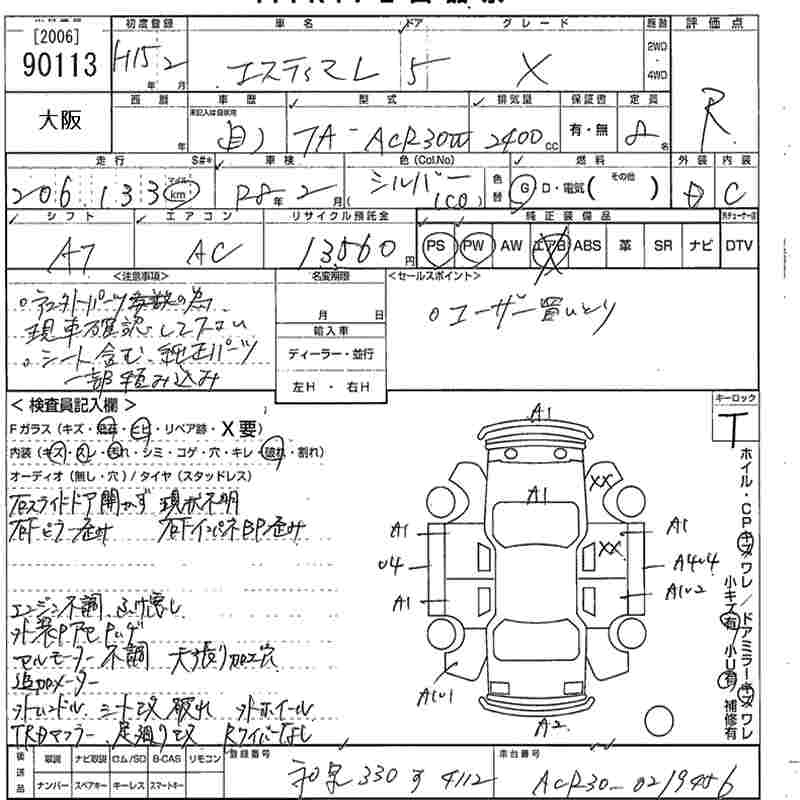 [2006]
90113
大阪
初度登録 車名 ドア グレード 駆動 評価点
H15年 2月 エスティマL 5 X 2WD・4WD R
西暦 車歴 型式 排気量 保証書 定員
年 未記入は自家用 自 TA-ACR30W 2400cc 有・無 8名
走行 S#* 車検 色(Col.No) 燃料 外装 内装
206,133 マイル km R8年 2月 シルバー (1C0) 色替 G・D・電気( その他 ) D C
シフト エアコン リサイクル預託金 純正装備品
AT AC 13560円 PS PW AW エアB ABS 革 SR ナビ DTV
<注意事項> 名変期限 <セールスポイント>
。アフターパーツ多数の為
現車確認して下さい
。シート含む、純正パーツ
一部積み込み
月 日
輸入車
ディーラー・並行
左H ・ 右H
。ユーザー買いとり
<検査員記入欄>
Fガラス(キズ・飛石・ヒビ・リペア跡・X要)
内装(キズ・スレ・汚れ・シミ・コゲ・穴・キレ・破れ・割れ)
オーディオ(無し・穴)/タイヤ(スタッドレス)
右スライドドア開かず 現状不明
右Fピラー歪み 右FインパネBP歪み
エンジン不調、ふけ悪し
セルモーター不調 天張り加工穴
追加メーター
外ハンドル、シートコス破れ 外ホイール
TRDマフラー、足廻りコス Rワイパーなし
キーロック
T
ホイル・CPキズワレ/ドアミラーキズワレ
小キズ有 小U有 補修有
A1
A1
XX
XX
A1
U4
A1
A1
A4U4
A1U2
A1U1
A2
後送品 取説 ナビ取説 ロム/SD B-CAS リモコン 登録番号 車台番号
ナンバー スペアキー キーレス スマートキー 和泉330す4112 ACR30-0219456